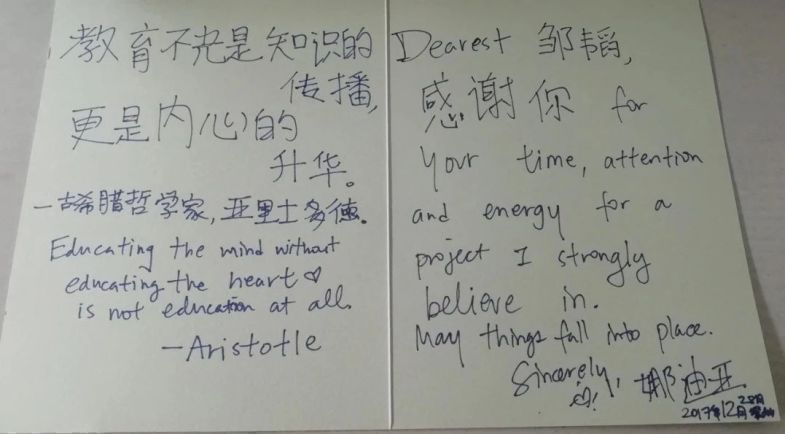 教育不光是知识的
传播,
更是内心的
升华。
—古希腊哲学家,亚里士多德.
Educating the mind without
educating the heart ♡
is not education at all.
—Aristotle
Dearest 邹韬,
感谢你 for
your time, attention
and energy for a
project I strongly
believe in.
May things fall into place.
Sincerely, 娜迪亚
2017年12月28日